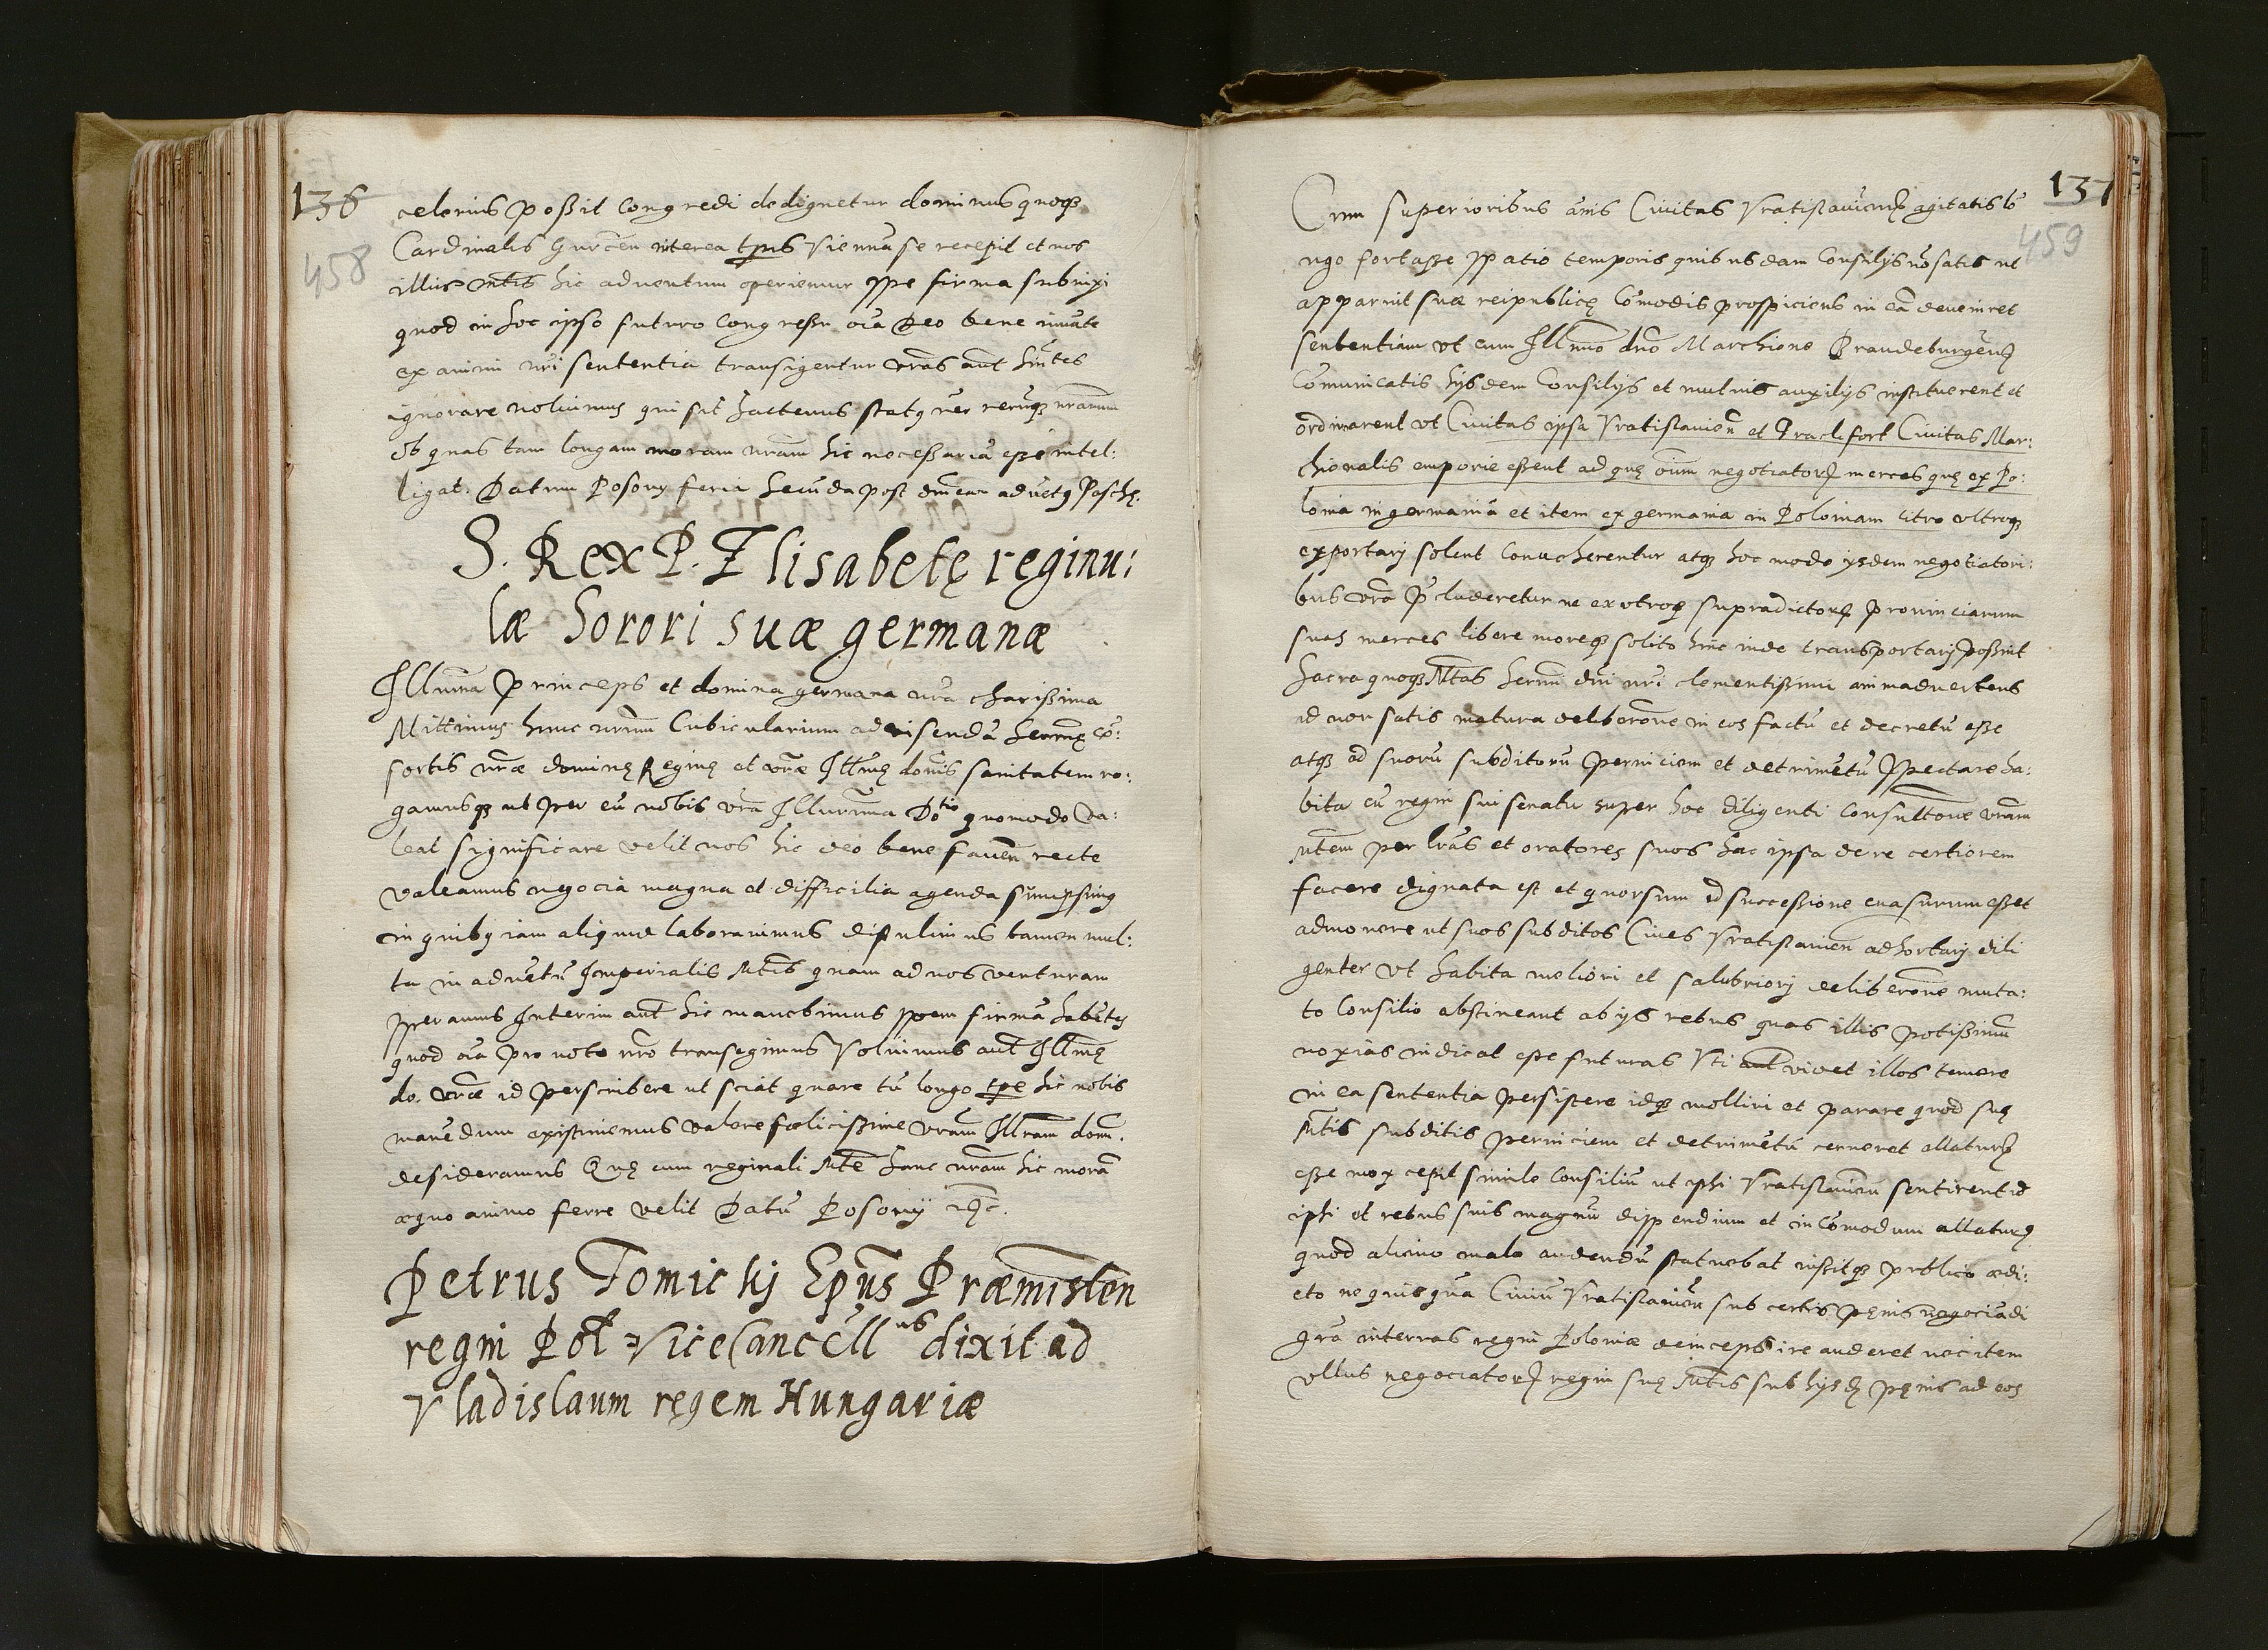 136
458
celerius possit congredi dedignetur dominus quoqȝ
Cardinalis Gurcen interea tp̄us Viennā se recepit et nos
illius mtis hic adventum operiemur spe firma subnixi
quod in hoc ipso futuro congressu oīa Deo bene iuvāte
ex animi nr̄i sententia transigentur vrās aut̄
ignorare nolumus qui sit hactenus statꝰ rerūqȝ nrarum
ob quas tam longam moram nrām hic necessariā esse intel:
ligat. Datum Posony feria secūda post dnīcam advētꝰ Paschę.
S. Rex P. Elisabetę reginu:
læ Sorori suæ germanæ
Illma princeps et domina germana nrā charissima
Mittimus hunc nrūm Cubicularium ad visendā Serenmę cō:
sortis nrǣ dominę Reginę et vrǣ Illmę domīs sanitatem ro:
gamusqȝ ut per eū nobis vrā Illurīma Dotio quomodo va:
leat significare velit nos hic deo bene faven̄ recte
valeamus negocia magna et difficilia agenda sumpsimꝰ
in quibꝰ iam aliqui laboravimus distulimus tamen mul:
ta in advētū Imperialis Mtis quam ad nos venturam
speramus Interim aut̄ hic manebimus spem firmā habētes
quod oīa pro voto nrō transegimus Volūimus aut̄ Illmę
do. vrǣ id perscribere ut sciat quare tū longo tpe hic nobis
manēdum existimemus valere fœlicissime vrām Illrām dom.
desideramus Quę cum reginali Mte hanc nrām hic morā
æquo animo ferre velit Datū Posonij
Petrus Tomickij Epūs Præmislen
regni Pol ViceCancellus dixit ad
Vladislaum regem Hungariæ
137
459
Cum superioribus anis Civitas Vratislavien agitatis lō
ngo fortasse spatio temporis quibusdam Consilijs nō satis ut
apparuit suæ reipublicę Cōmodis prospiciens in eā deveniret
sententiam ut cum Illmo dno Marchione Brandeburgen
Cōmunicatis hijsdem Consilijs et mutuis auxilijs instituerent et
ordinarent ut Civitas ipsa Vratislavien et Francfort Civitas Mar:
chionalis emporie essent ad quę oīum negotiator merces quę ex Po:
lonia in germaniā et item ex germania in Poloniam citro ultroqȝ
exportarij solent convecherentur atqȝ hoc modo ijsdem negotiatori:
bus via p̄cluderetur ne ex utroqȝ supradictor provinciarum
suas merces libere moreqȝ solito hinc inde transportarij possint
Sacra quoqȝ Mtas Sermi dni nr̄i clementissimi animadvertens
id non satis matura deliberone in eos factū et decretū esse
atqȝ ad suorū subditorū perniciem et detrimētū spectare ha:
bita cū regni sui senatu super hoc diligenti consultone vrām
Mtem per lrās et oratores suos hac ipsa de re certiorem
facere dignata est et quorsum id successione evasurum esset
admonere ut suos subditos Cives Vratislavien adhortarij dili
genter ut habita meliori et salubriorij deliberone muta:
to Consilio abstineant ab ijs rebus quas illis potissimū
noxias indicat esse futuras Vti aut̄ videt illos temere
in ea sententia persistere idqȝ molliri et parare quod suę
Mtis subditis perniciem et detrimētū cerneret allatur
esse mox cepit simile Consiliū ut ipsi Vratislavien sentirent id
ipsi et rebus suis magnū dispendium et incōmodum allaturū
quod alieno malo audendū statuebāt iussitqȝ publico ædi:
cto ne quisquā Civiū Vratislavien sub certis pęnis negociādi
grā in terras regni Poloniæ deinceps ire auderet nec item
ullus negociator regni suę Mtis sub hijsd pęnis ad eos